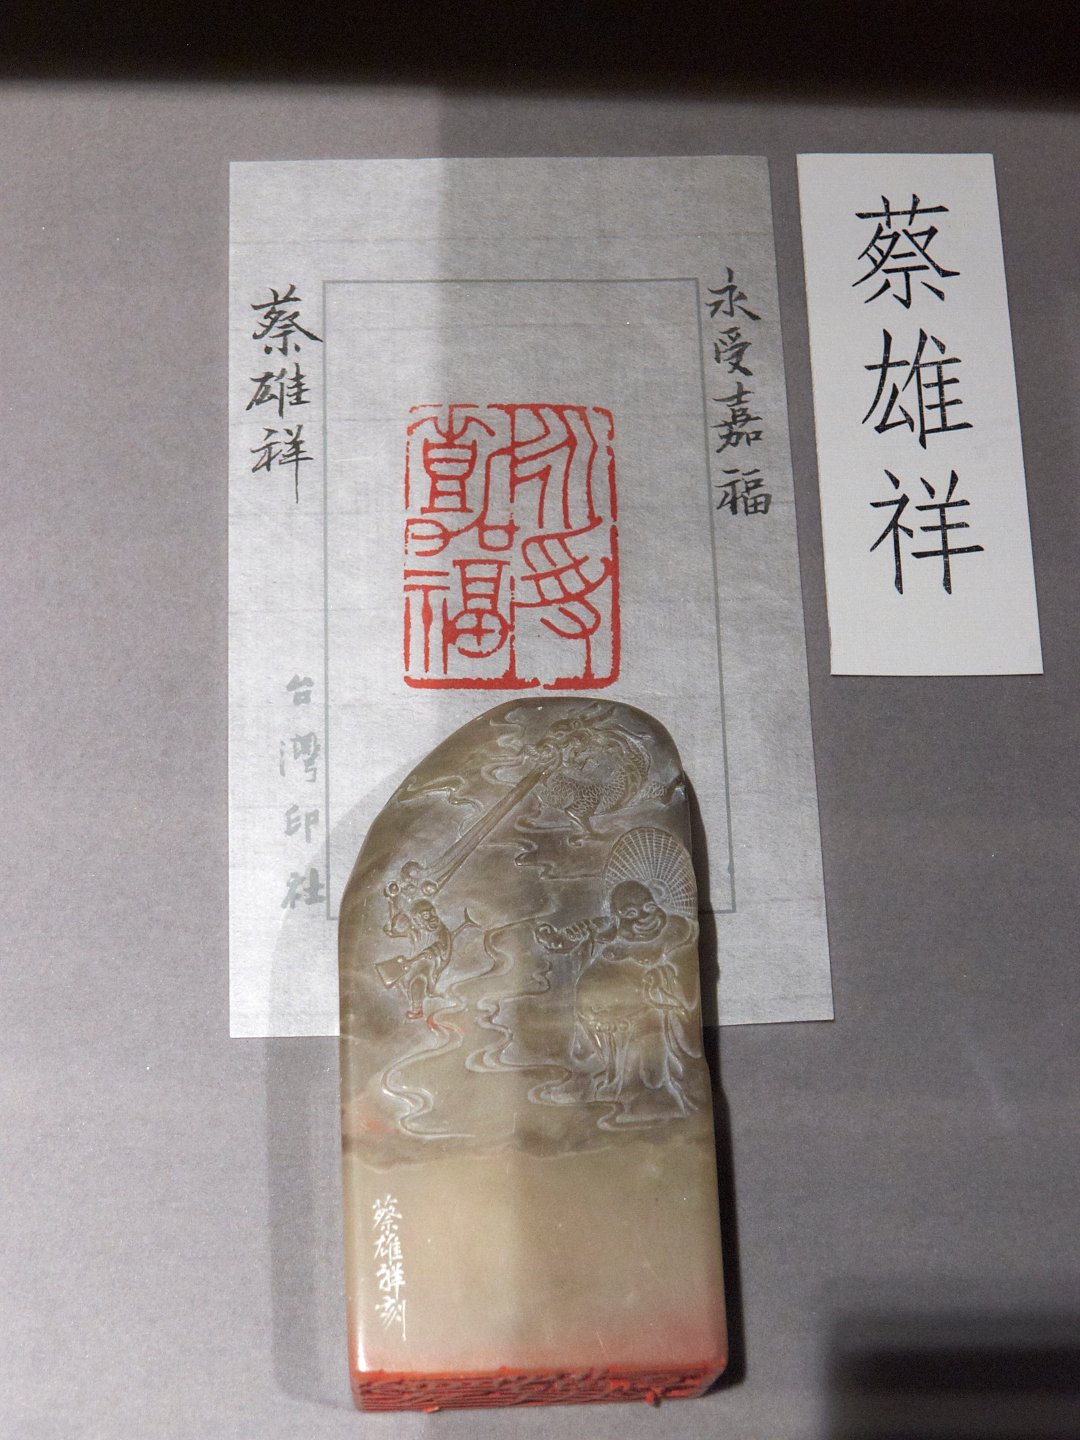 蔡雄祥
永受嘉福
永受嘉福
蔡雄祥
台灣印社
蔡雄祥刻